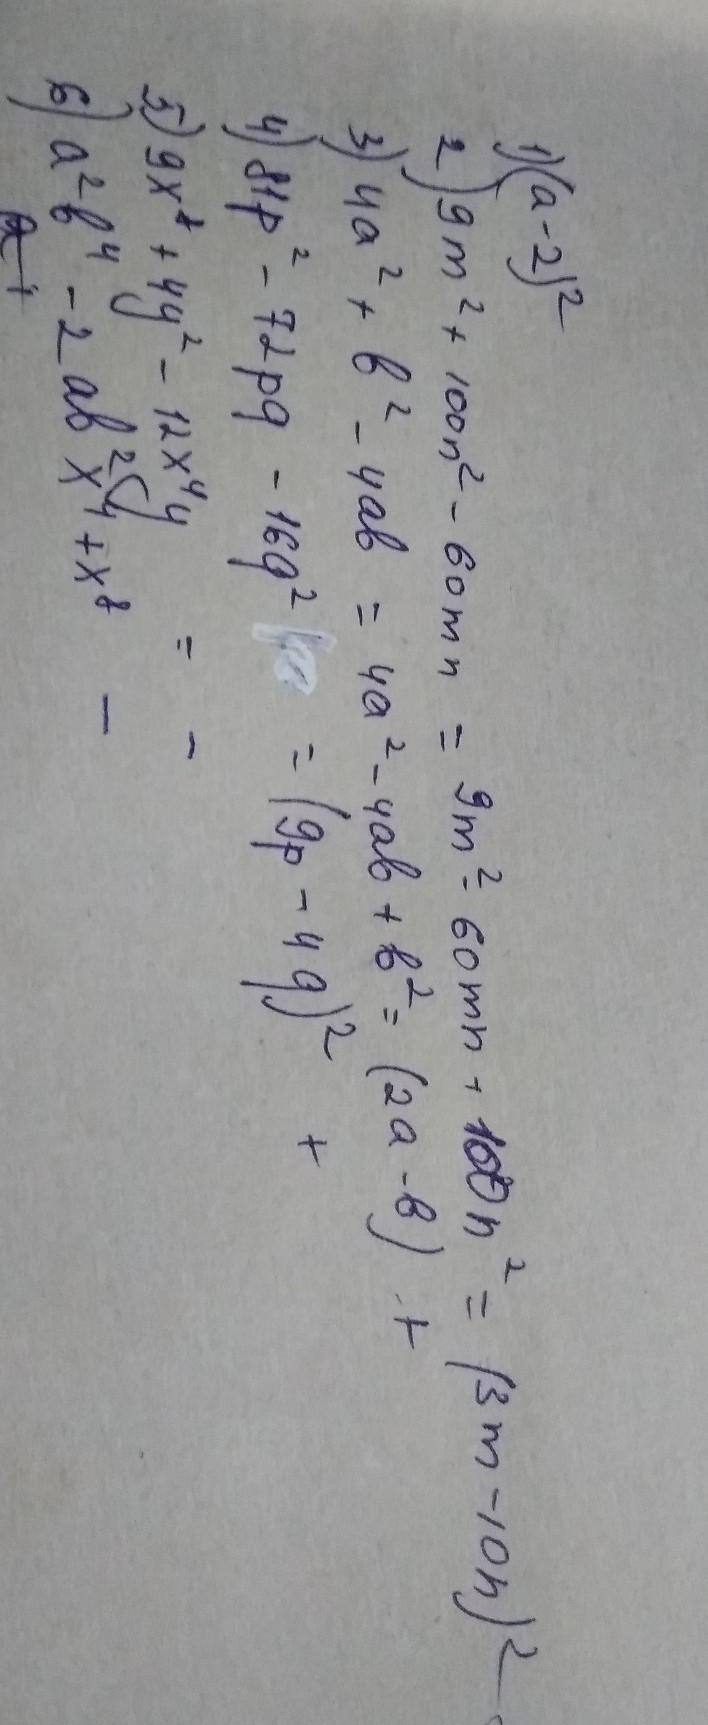 1) (a-2)²
2) 9m² + 100n² - 60mn = 9m² - 60mn + 100n² = (3m - 10n)²
3) 4a² + b² - 4ab = 4a² - 4ab + b² = (2a - b) +
4) 81p² - 72pq - 16q² = (9p - 4q)² +
5) 9x⁸ + 4y² - 12x⁴y = -
6) a²b⁴ - 2ab²x⁴ + x⁸ -